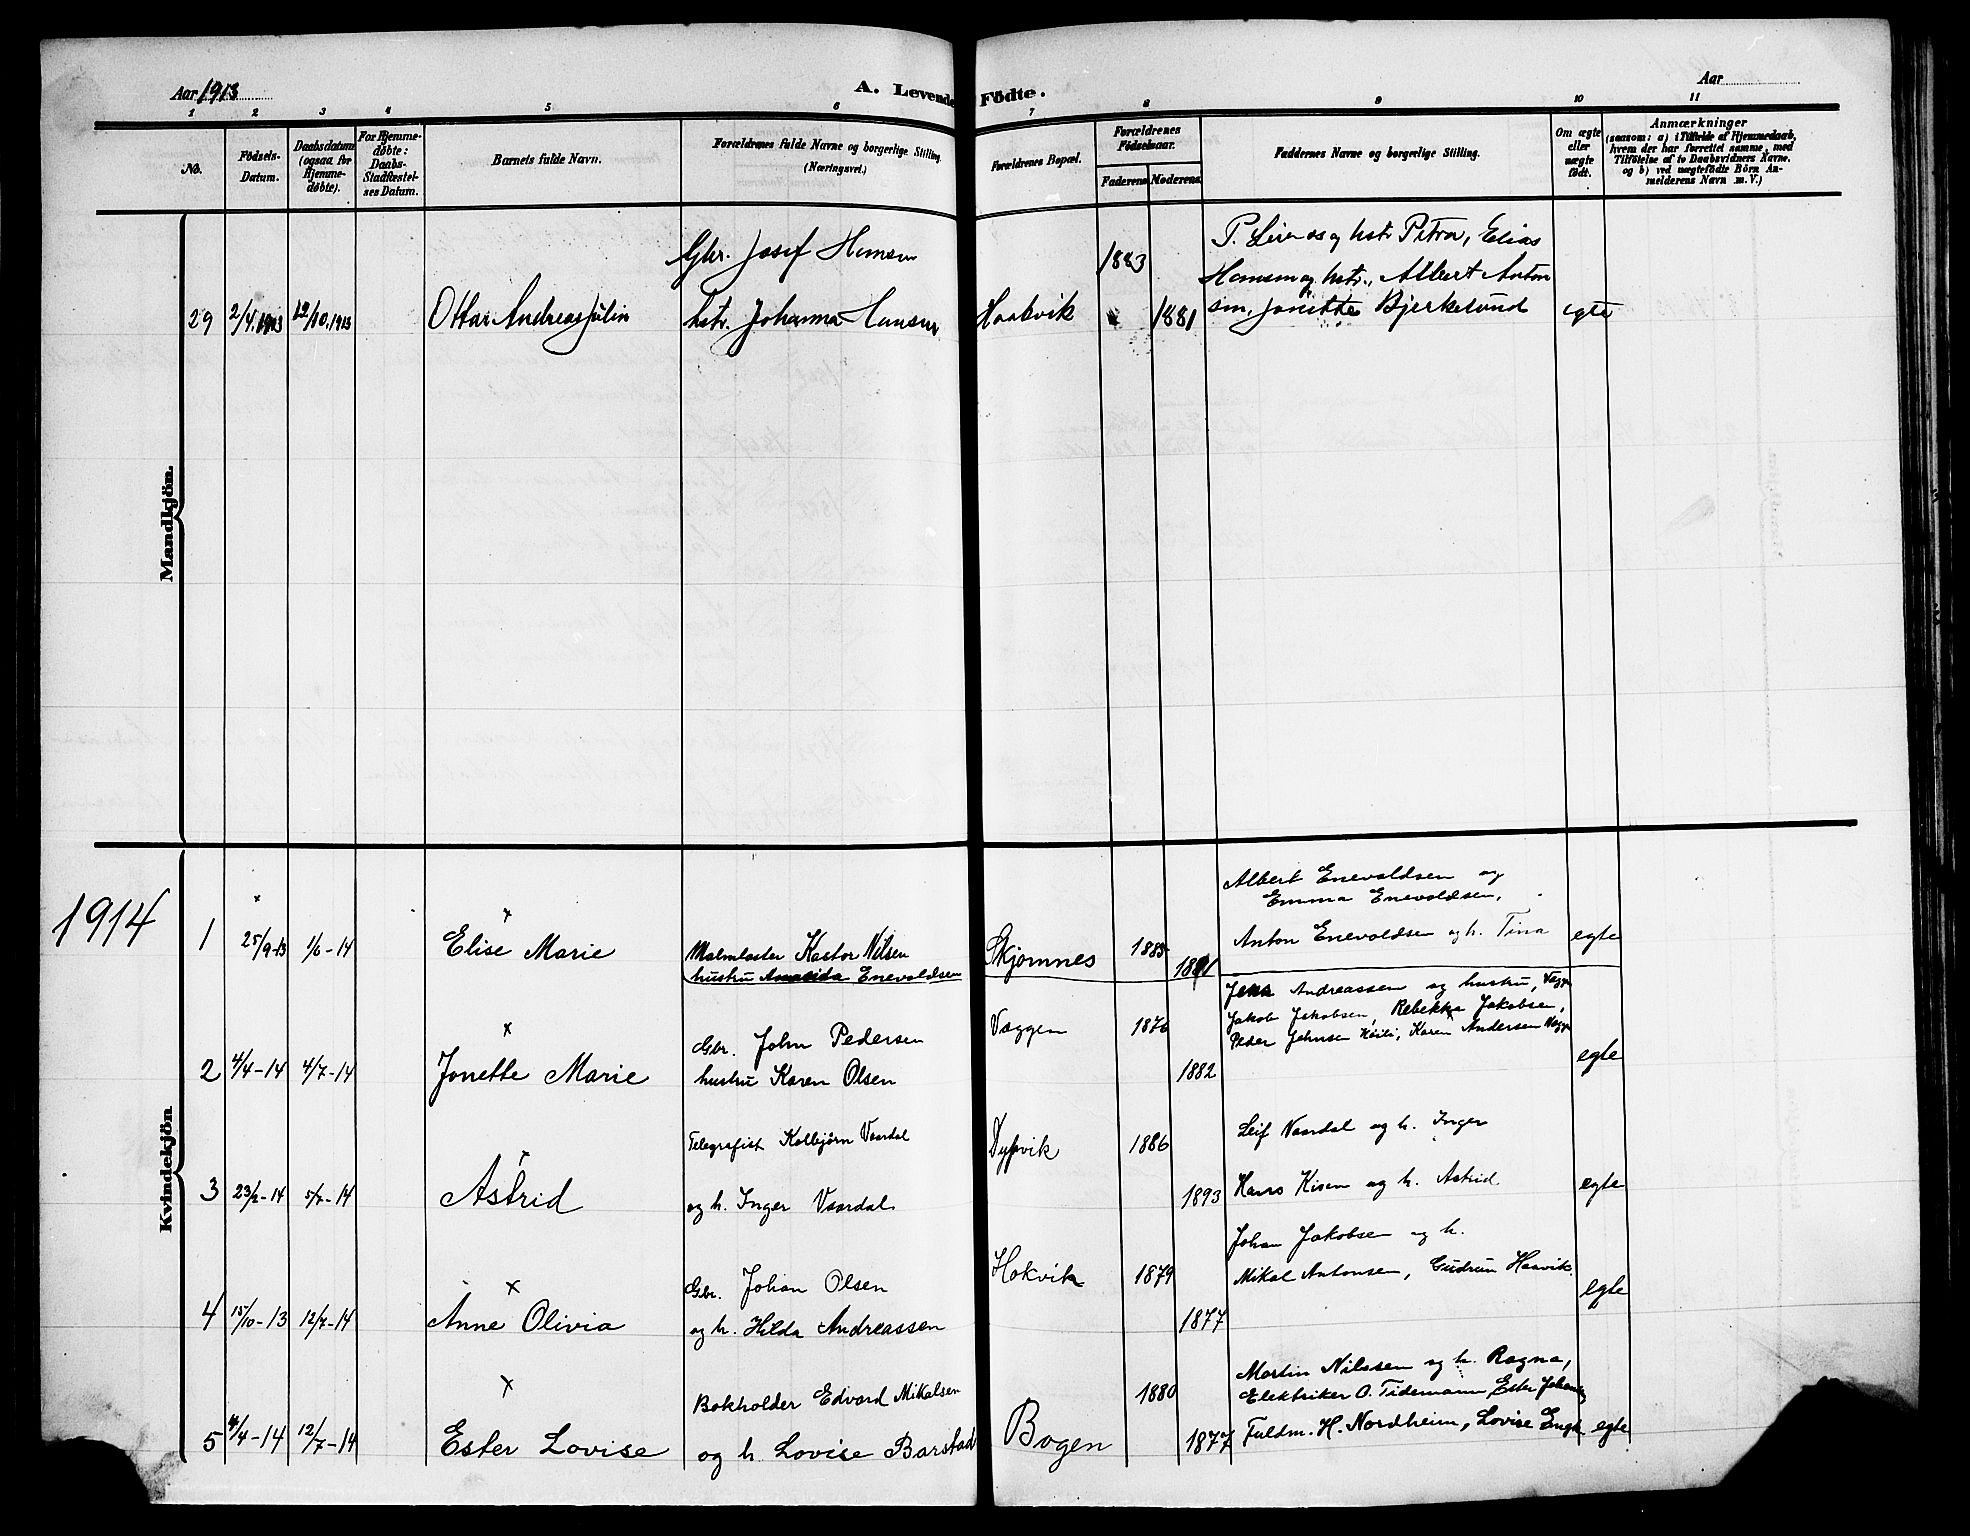 Aar 1913
A. Levende Födte.
Aar
1 2 3 4 5 6 7 8 9 10 11
No.
Födsels-Datum.
Daabsdatum (ogsaa for Hjemmedøbte).
For Hjemmedøbte: Daabs-Stadfæstelses Datum.
Barnets fulde Navn.
Forældrenes fulde Navne og borgerlige Stilling. (Næringsvei.)
Forældrenes Bopæl.
Forældrenes Födselsaar.
Faderens Moderens
Faddernes Navne og borgerlige Stilling.
Om ægte eller uægte födt.
Anmærkninger
(saasom: a) i Tilfælde af Hjemmedaab, hvem der har forrettet samme, med Tilföielse af to Daabsvidners Navne. og b) ved uægtefödte Börn Anmelderens Navn m. V.)
Mandkjön.
Gbr. Josef Hansen 1883 P. og hstr Petra, Elias
Hansen og hstr., Albert Anton
29 2/4.1913 12/10.1913 Ottar Andreas Julin hstr. Johanna Hansen Haakvik 1881 sen, Bjerkelund egte
1914
Kvindekjön
Albert Enevoldsen og
Emma Enevoldsen,
1 25/9-13 1/6-14 Elise Marie Malmlaster Kastor Nilsen Skjomnes 1885 Anton Enevoldsen og h. Tina egte
hustru Enevoldsen
Jens Andreassen og hustru,
Gbr. John Pedersen Vaggen 1876 Jakob Jakobsen, Rebekka Jakobsen,
Peder Johnsen Karen Andersen
2 4/4-14 4/7-14 Jonette Marie hustru Karen Olsen 1882 egte
Telegrafist Kolbjörn Vaardal Dypvik 1886 Leif Vaardal og h. Inger
3 23/2-14 5/7-14 Astrid og h. Inger Vaardal 1893 Hans og h. Astrid egte
Johan Jakobsen og h.
Gbr. Johan Olsen Hokvik 1879 Mikal Antonsen, Gudrun Haavik egte
4 15/10-13 12/7-14 Anne Olivia og h. Hilda Andreassen 1877
Martin Nilssen og h. Ragna,
Bokholder Edvard Mikalsen 1880 Elektriker O. Tidemann Ester
5 4/4-14 12/7-14 Ester Lovise og h. Lovise Barstad Bogen 1877 Fuldm. H. Nordheim, Lovise egte